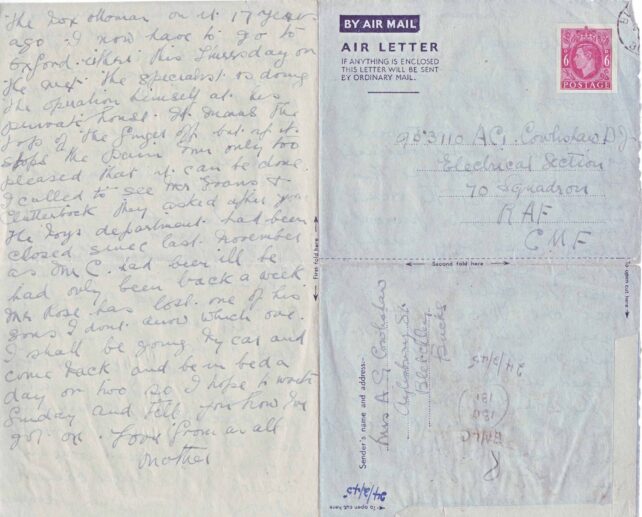 The box ottoman on it 17 years
ago. I now have to go to
Oxford either this Thursday or
the next. The specialist is doing
the operation himself at his
private house. It means the
top of the finger off but if it
stops the pain I'm only too
pleased that it can be done.
I called to see Mr Evans &
Clutterbock They asked after you
The Toys department had been
closed since last November
as Mr C. had been ill he
had only been back a week
Mr Rose has lost one of his
sons I dont know which one.
I shall be going by car and
come back and be in bed a
day or two so I hope to write
Sunday and tell you how I've
got on. Love from us all
Mother
BY AIR MAIL
AIR LETTER
IF ANYTHING IS ENCLOSED
THIS LETTER WILL BE SENT
BY ORDINARY MAIL.
6 6
POSTAGE
AC1 Cowlishaw D.J.
Electrical Section
70 Squadron
RAF
CMF
First fold here
Second fold here
To open cut here
Sender's name and address:-
Mrs A G Cowlishaw
Aylesbury St
Bletchley
Bucks
24/2/45
24/2/45
To open cut here